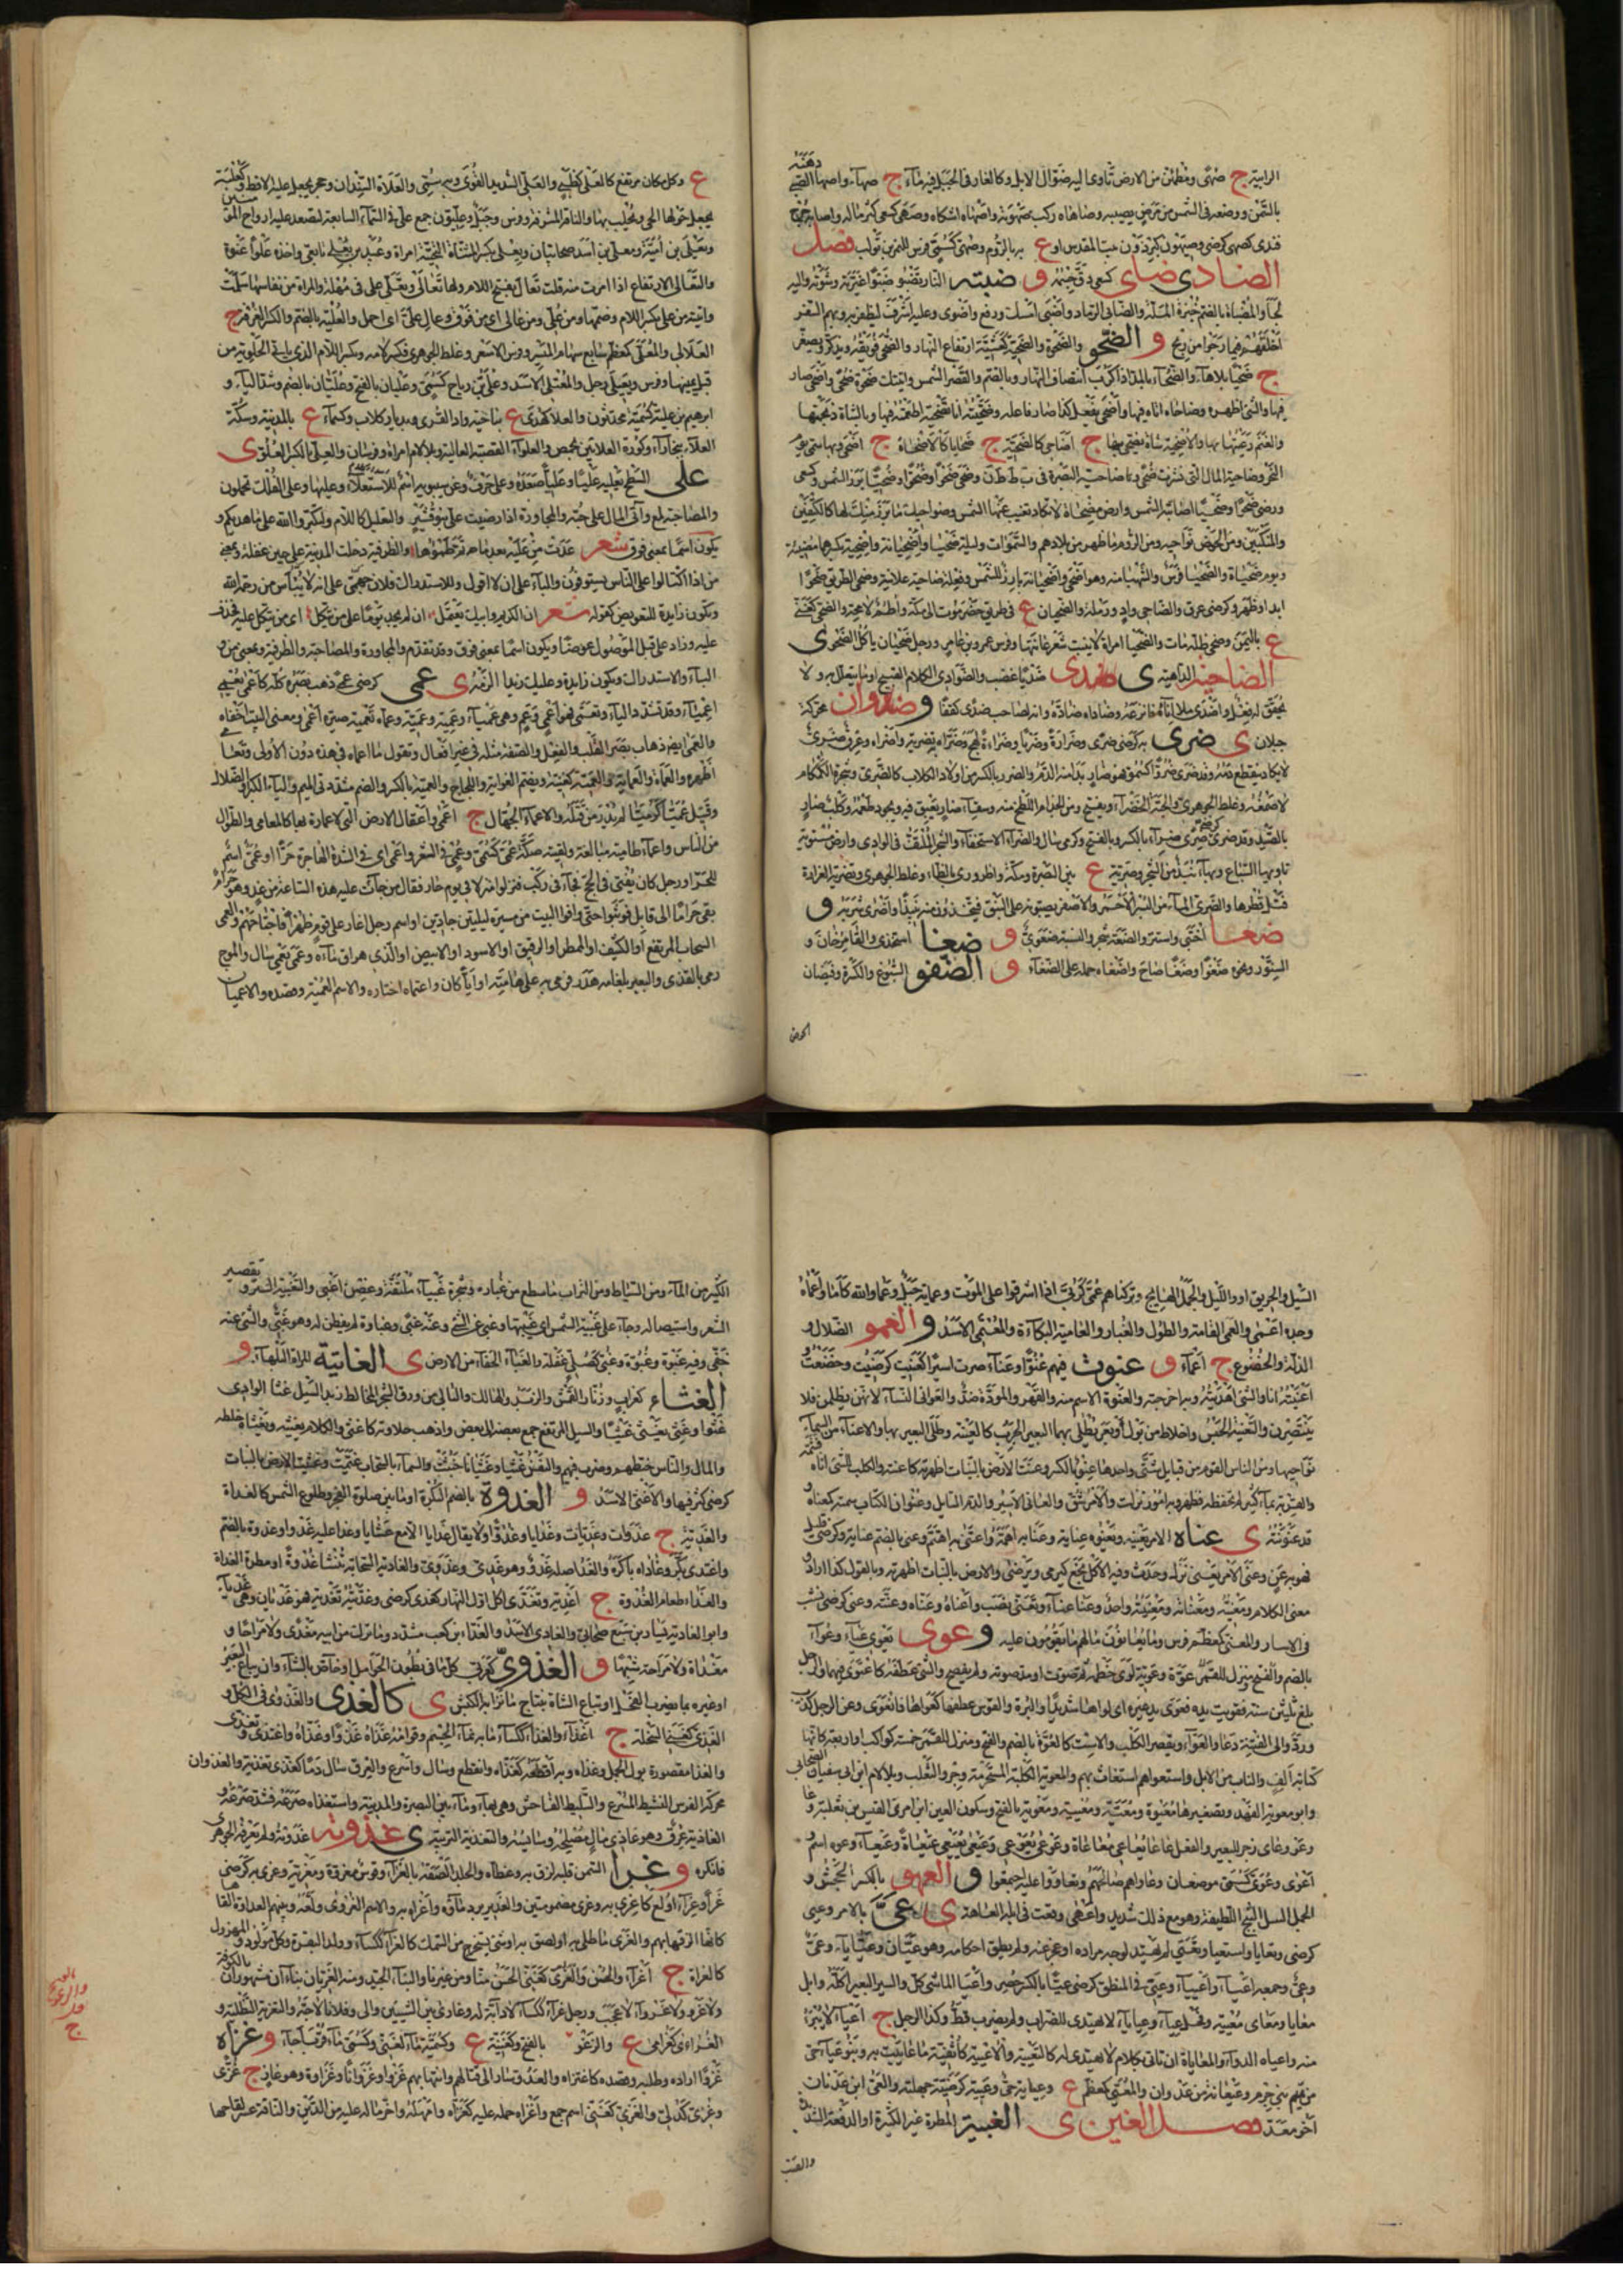 الرابية ج صهى ومطمئن من الارض تأوى اليه ضوال الابل وكالغار فى الجبل فيه ماء ج صهاء واصهى الصبى دهنه
بالسمن ووضعه فى الشمس من مرض يصيبه وصاهاه ركب صهوته
الضادى ضاى كسعى دق جسمه و ضبته النار تضبو ضبوا غيرته وشوته واليه
لجأ والمضباة بالضم خبزة الملة والضابى الرماد واضبى امسك ورفع واضوى وعليه اشرف ليظفر به وبهم السفر
اخلفهم فيما رجوا من ربح و الضحو والضحوة والضحية كعشية ارتفاع النهار والضحى فويقه ويذكر ويصغر
ج ضحيا بلا هاء والضحاء بالمد اذا كرب انتصاف النهار وبالضم والقصر الشمس واتيتك ضحوة ضحى واضحى صار
فيها والشئ اظهره وضاحاه اتاه فيها واضحى يفعل كذا صار فاعله وضحيته انا تضحية اطعمته فيها وبالشاة ذبحتها
والغنم رعيتها بها والاضحية شاة يضحى بها ج اضاحى كالضحية ج ضحايا كالاضحاة ج اضحى وبها سمى يوم
النحر وضاحية المال التى تشرب ضحى
ورضى ضحوا وضحيا اصابته الشمس وارض مضحاة لا تكاد تغيب عنها الشمس وضواحيك ما برز منك لها كالكتفين
والمنكبين ومن الحوض نواحيه ومن الروم ما ظهر من بلادهم والسموات وليلة ضحياء واضحيانة واضحية بكسرهما مضيئة
ويوم ضحياة والضحيا فرس
ابدا وظهر وكرضى عرق والضاحى واد ورملة والضحيان ع فى طريق حضرموت الى مكة
ع باليمن وضحى ظله مات والضحيا امراة لا ينبت شعر عانتها وفرس عمرو بن عامر ورجل ضحيان ياكل الضحو ى
الضاخية الداهية ى ضدى ضدى غضب والضوادى الكلام القبيح او ما يتعلل به ولا
يحقق له فعل واضدى ملا اناءه فاترعه وضاداه ضاده وانه لصاحب ضدى كقفا و ضدوان محركة
جبلان ى ضرى به كرضى ضرى وضراوة وضريا وضراءة لهج وضراه به تضرية واضراه وعرق ضرى
لا يكاد ينقطع دمه وقد ضرى ضروا كسمو فهو ضار بدا منه الدم والضرو بالكسر من اولاد الكلاب كالضرى وشجرة الكمكام
لا صمغه وغلط الجوهرى والحبة الخضراء ويفتح ومن الجذام اللطخ منه وسقاء ضار يعتق فيه ويجود طعمه وكلب ضار
بالصيد وقد ضرى ضرى وضراء بالكسر وبالفتح وكرمى سال والضراء الاستخفاء والشجر الملتف فى الوادى وارض مستوية
تأويها السباع وبها نبذ من الشجر وضرية ع بين البصرة ومكة واظرورى بالظاء وغلط الجوهرى وتضرية الغرارة
فتل قطرها والضرى الماء من البسر الاحمر والاصفر يصبونه على النبق فيتخذون منه نبيذا واضرى شربه و
ضعا اختبى واستتر والضعة شجر والنسبة ضعوى و ضغا استخذى والمقامر خان و
السنور ونحوه ضغوا وضغاء صاح واضغاه حمله على الضغاء و الضفو السبوغ والكثرة وفيضان
الحوض
ع وكل مكان مرتفع كالعلى كظبى والعلى الشديد القوى وبه سمى والعلاة السندان وحجر يجعل عليه الاقط وكعلبة
يجعل حولها الخثى ويحلب بها والناقة المشرفة وفرس وجبل وعليون جمع على فى السماء السابعة تصعد اليه ارواح المؤمنين
ويعلى بن امية ومعلى بن اسد صحابيان وتعلى بكسر المثناة الفوقية امراة وعبيد بن تعلى تابعى واخذه علوا عنوة
والتعالى الارتفاع اذا امرت منه قلت تعال بفتح اللام ولها تعالى وتعلى علا فى مهلة والمراة من نفاسها سلمت
واتيته من عل بكسر اللام وضمها ومن علا ومن عال اى من فوق وعال على اى احمل والعلية بالضم والكسر الغرفة ج
العلالى والمعلى كمعظم سابع سهام الميسر وفرس الاسعر وغلط الجوهرى فكسر لامه وبكسر اللام الذى يأتى الحلوبة من
قبل يمينها وفرس ويعيلى رجل والمعتلى الاسد وعلى بن رباح كسمى وعليان بالفتح وعليان بالضم وشد الياء و
ابراهيم بن علية كسمية محدثون والعلا كهدى ع بناحية وادى القرى وبديار كلاب وكسماء ع بالمدينة وسكة
العلاء ببخاراء وكورة العلاتين بحمص والعلواء القصبة العالية وبلا لام امراة وفرسان والعلى بالكسر العلو ى
على السطح يعليه عليا وعليا صعده وعلى حرف وعن سيبويه اسم للاستعلاء وعليها وعلى الفلك تحملون
والمصاحبة واتى المال على حبه والمجاوزة اذا رضيت على بنو قشير والتعليل كاللام ولتكبروا الله على ما هديكم و
يكون اسما بمعنى فوق شعر غدت من عليه بعد ما تم ظمؤها والظرفية دخلت المدينة على حين غفلة وبمعنى
من اذا اكتالوا على الناس يستوفون والباء على ان لا اقول وللاستدراك فلان جهنمى على انه لا ييأس من رحمة الله
ويكون زايدة للتعويض كقوله شعر ان الكريم وابيك يعتمل ان لم يجد يوما على من يتكل اى من يتكل عليه فحذف
عليه وزاد على قبل الموصول عوضا ويكون اسما بمعنى فوق وقد تقدم والمجاوزة والمصاحبة والظرفية وبمعنى من و
الباء والاستدراك ويكون زايدة وعليك زيدا الزمه ى عمى كرضى عمى ذهب بصره كله
وقد تشدد الياء وتعمى فهو اعمى وعم وهى عمياء وعمية وعمية وعماه تعمية صيره اعمى ومعنى البيت اخفاه
والعمى ايضا ذهاب بصر القلب والفعل والصفة مثله فى غير افعال وتقول ما اعماه فى هذه دون الاولى وتعامى
اظهره والعماءة والعماية والعمية كغنية ويضم الغواية واللجاج والعمية بالكسر والضم مشددتى الميم والياء الكبر او الضلال
وقتيل عميا كرميا لم يدر من قتله والاعماء الجهال ج اعمى واغفال الارض التى لا عمارة بها كالمعامى والطوال
من الناس واعماء عامية مبالغة ولقيته صكة عمى كسمى وعمى فى الشعر واعمى اى فى اشد الهاجرة حرا او عمى اسم
للحر او رجل كان يفتى فى الحج فجاء فى ركب فنزلوا منزلا فى يوم حار فقال من جاءت عليه هذه الساعة من غد وهو حرام
بقى حراما الى قابل فوثبوا حتى وافوا البيت من مسيرة ليلتين جادين او اسم رجل اغار على قوم ظهرا فاجتاحهم والعمى
السحاب المرتفع او الكثيف او الممطر او الرقيق او الاسود او الابيض او الذى هراق ماءه وعمى يعمى سال والموج
رمى بالقذى والبعير بلغامه هدر فرمى به على هامته او ايا كان واعتماه اختاره والاسم العمية وقصده والاعميان
السيل والحريق او والليل والجمل الهايج وتركناهم عمى كربى اذا اشرفوا على الموت وعماية جبل وعما والله كاما واعماه
وجده اعمى والعمى القامة والطول والغبار والعامية البكاءة والمعتمى الاسد و العمو الضلال و
الذلة والخضوع ج اعماء و عنوت فيهم عنوا وعناء صرت اسيرا كعنيت كرضيت وخضعت
اعنيته انا والشئ ابديته وبه اخرجته والعنوة الاسم منه والقهر والمودة ضد والعوانى النساء لانهن يظلمن فلا
ينتصرن والتعنية الحبس واخلاط من بول وبعر يطلى بها البعير الجرب كالعنية وطلى البعير بها والاعناء من السماء
نواحيها ومن الناس القوم من قبايل شتى واحدها عنو بالكسر وعنت الارض بالنبات اظهرته كاعنته والكلب الشئ اتاه فشمه
والقربة بماء كثير لم تحفظه فظهر وبه امور نزلت والامر شق والعانى الاسير والدم السائل وعنوان الكتاب سمته كعناه و
قد عنونته ى عناه الامر يعنيه ويعنوه عناية وعناية اهمه واعتنى به اهتم وعنى بالضم عناية وكرضى قليل
فهو به عن وعنى الامر يعنى نزل وحدث وفيه الاكل نجع كيرمى ويرضى والارض بالنبات اظهرته وبالقول كذا اراد و
معنى الكلام ومعنيه ومعناته ومعنيته واحد وعنا عناء وتعنى نصب واعناه وعناه وعنى كرضى نشب
فى الاسار والمعنى كمعظم فرس وما يعانون مالهم ما يقومون عليه و عوى يعوى عيا وعواء
بالضم والفتح منزل للقمر عوة وعوية لوى خطمه ثم صوت او مد صوته ولم يفصح والشئ عطفه كاعتوى فيهما والرجل
بلغ ثلثين سنة فقويت يده فعوى يد غيره اى لواها شديدا والبرة والقوس عطفها كعواها فانعوى وعن الرجل كذب
ورد والى الفتنة دعا والعواء ويقصر الكلب والاست كالعوة بالضم والفتح ومنزل للقمر خمسة كواكب او اربعة كانها
كتابة الف والناب من الابل واستعواهم استغاث بهم والمعوية الكلبة المستحرمة وجرو الثعلب وبلا لام ابن ابى سفيان الصحابى
وابو معوية الفهد وتصغيرها معيوة ومعيية ومعيية ومعوية بالفتح وسكون العين ابن امرى القيس بن ثعلبة وعا
وعو وعاى زجر للبعير
اعوى وعوى كسمى موضعان وعاواهم صايحهم وتعاووا عليه تجمعوا و العهو بالكسر الجحش و
الجمل النبيل الثبج اللطيفة وهو مع ذلك شديد واعهى وقعت فى ابله العاهة ى عى بالامر وعيى
كرضى وتعايا واستعيا وتعيا لم يهتد لوجه مراده او عجز عنه ولم يطق احكامه وهو عيان وعياياء وعى
وعيى وجمعه اعياء واعيياء وعيى فى المنطق كرضى عيا بالكسر حصر واعيا الماشى كل والسير البعير اكله وابل
معايا ومعاى معيية وفحل عياء وعياياء لا يهتدى للضراب ولم يضرب قط وكذا الرجل ج اعياء لا يبرأ
منه واعياه الداء والمعاياة ان تأتى بكلام لا يهتدى له كالتعيية والاعيية كاثفية ما عاييت به وبنو عياء حى
من جرم وعيعانة من عدوان والمعيى كمعظم ع وعياية حى
اخو معد فصل الغين ى الغبية المطرة غير الكثيرة او الدفعة الشديدة
والصب
الكثير من الماء ومن السياط ومن التراب ما سطع من غباره وشجرة غبياء ملتفة وغصن اغبى والتغبية الستر وتقصير
الشعر واستيصاله وجاء على غبية الشمس اى غيبتها وغبى الشئ وعنه غبا وغباوة لم يفطن له وهو غبى والشئ عنه
خفى وفيه غبوة وغبوة وغبى كصلى غفلة والغباء الخفاء من الارض ى الغاتية المراة البلهاء و
الغثاء كغراب وزنار القمش والزبد والهالك والبالى من ورق الشجر المخالط زبد السيل غثا الوادى
غثوا وغثى يغثى غثيا والسيل المرتع جمع بعضه الى بعض واذهب حلاوته كاغثى والكلام يغثيه ويغثاه خلطه
والمال والناس خبطهم وضرب فيهم والنفس غثيا وغثيانا خبثت والسماء بالسحاب غيمت وغثيت الارض بالنبات
كرضى كثر فيها والاغثى الاسد و الغدوة بالضم البكرة او ما بين صلوة الفجر وطلوع الشمس كالغداة
والغدية ج غدوات وغديات وغدايا وغدو ولا يقال غدايا الا مع عشايا وغدا عليه غدوا وغدوة بالضم
واغتدى بكر وغاداه باكره والغد اصله غدو وهو غدى وغدوى والغادية السحابة تنشا غدوة او مطرة الغداة
والغداء طعام الغدوة ج اغدية وتغدى اكل اول النهار كغدى كرضى وغديته تغدية فهو غديان وهى غديا
وابو الغادية يسار بن سبع صحابى والغادى الاسد والغداء بن كعب مشددة وما ترك من ابيه مغدى ولا مراحا و
مغداة ولا مراحة شبها و الغدوى كعربى كل ما فى بطون الحوامل او خاص بالشاء وان يباع البعير
او غيره بما يضرب الفحل او تباع الشاة بنتاج ما نزا به الكبش ى كالغذى والغذوى فى الكل و
الغذى كغنى السخلة ج اغذاء والغذاء ككساء ما به نماء الجسم وقوامه غذاه غذوا وغذاه واغتذى وتغذى
والغذا مقصورة بول الجمل وغذاه وبه قطعه كغذاه وانقطع وسال واسرع والعرق سال دما كغذى تغذية والغذوان
محركة الفرس النشيط المسرع والسليط الفاحش وهى بهاء وماء بين البصرة والمدينة واستغذاه صرعه فشد صرعه و
الغاذية عرق وهو غاذى مال مصلحه وسائسه والتغذية التربية ى غذيته غذوته ولم يعرفه الجوهرى
فانكره و غرا السمن قلبه لزق به وغطاه والجلد الصقه بالغراء وقوس مغروة ومغرية وغرى به كرضى
غرا وغراء اولع كاغرى به وغرى مضمومتين والغدير برد ماؤه واغراه به والاسم الغروى ولعه وبينهم العداوة القاها
كانه الزقها بهم والغرى ما طلى به او لصق به او شئ يستخرج من السمك كالغراء ككساء وولد البقرة وكل مولود والمهزول
كالغراة ج اغراء والحسن والغرى كغنى الحسن منا ومن غيرنا والبناء الجيد ومنه الغريان بناءان مشهوران بالكوفة
ولا غرو ولا غروى لا عجب ورجل غراء ككساء لا دابة له وغارى بين الشيئين والى وفلانا لاجه والتغرية التطلية و
ع والرغو بالفتح وكغنية ع وكسمية ماء لغنى وكسمى ماء قرب اجاء و غزاه
غزوا اراده وطلبه وقصده كاغتزاه والعدو سار الى قتالهم وانتهابهم غزوا وغزوانا وغزاوة وهو غاز ج غزى
وغزى كدلى والغزى كغنى اسم جمع واغزاه حمله عليه كغزاه وامهله واخر ماله عليه من الدين والناقة عسر لقاحها